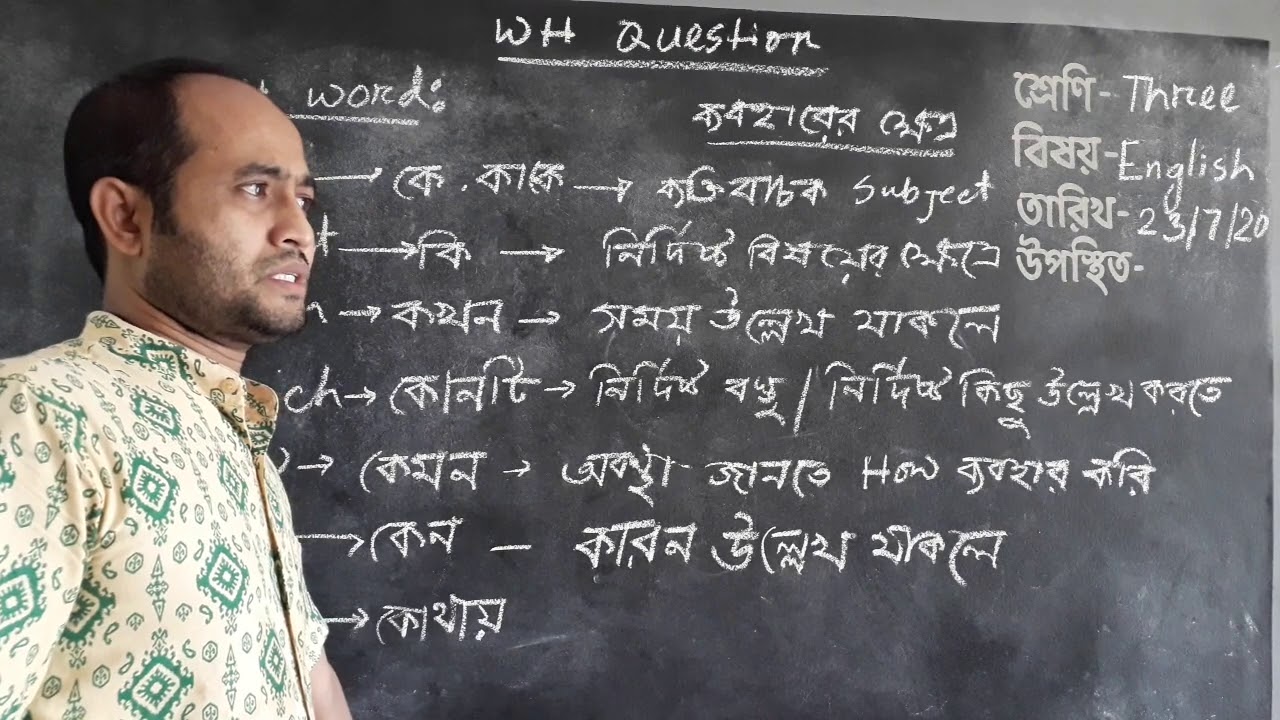 WH Question
word:
ব্যবহারের ক্ষেত্র
→ কে . কাকে → ব্যক্তিবাচক Subject
t → কি → নির্দিষ্ট বিষয়ের ক্ষেত্রে
n → কখন → সময় উল্লেখ থাকলে
ch → কোনটি → নির্দিষ্ট বস্থু / নির্দিষ্ট কিছু উল্লেখ করতে
→ কেমন → অবস্থা জানতে How ব্যবহার করি
→ কেন – কারন উল্লেখ থাকলে
→ কোথায়
শ্রেণি- Three
বিষয়- English
তারিখ- 23/7/20
উপস্থিত-